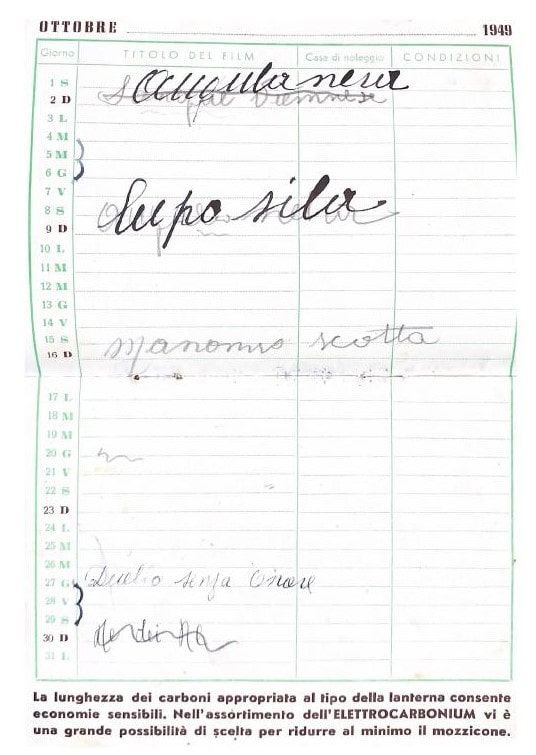 OTTOBRE 1949
Giorno TITOLO DEL FILM Casa di noleggio CONDIZIONI
1 S
2 D
3 L
4 M
5 M
6 G
7 V
8 S Lupo sila
9 D
10 L
11 M
12 M
13 G
14 V
15 S scotta
16 D
17 L
18 M
19 M
20 G
21 V
22 S
23 D
24 L
25 M
26 M
27 G Duello senza Onore
28 V
29 S
30 D
31 L
La lunghezza dei carboni appropriata al tipo della lanterna consente
economie sensibili. Nell'assortimento dell'ELETTROCARBONIUM vi è
una grande possibilità di scelta per ridurre al minimo il mozzicone.